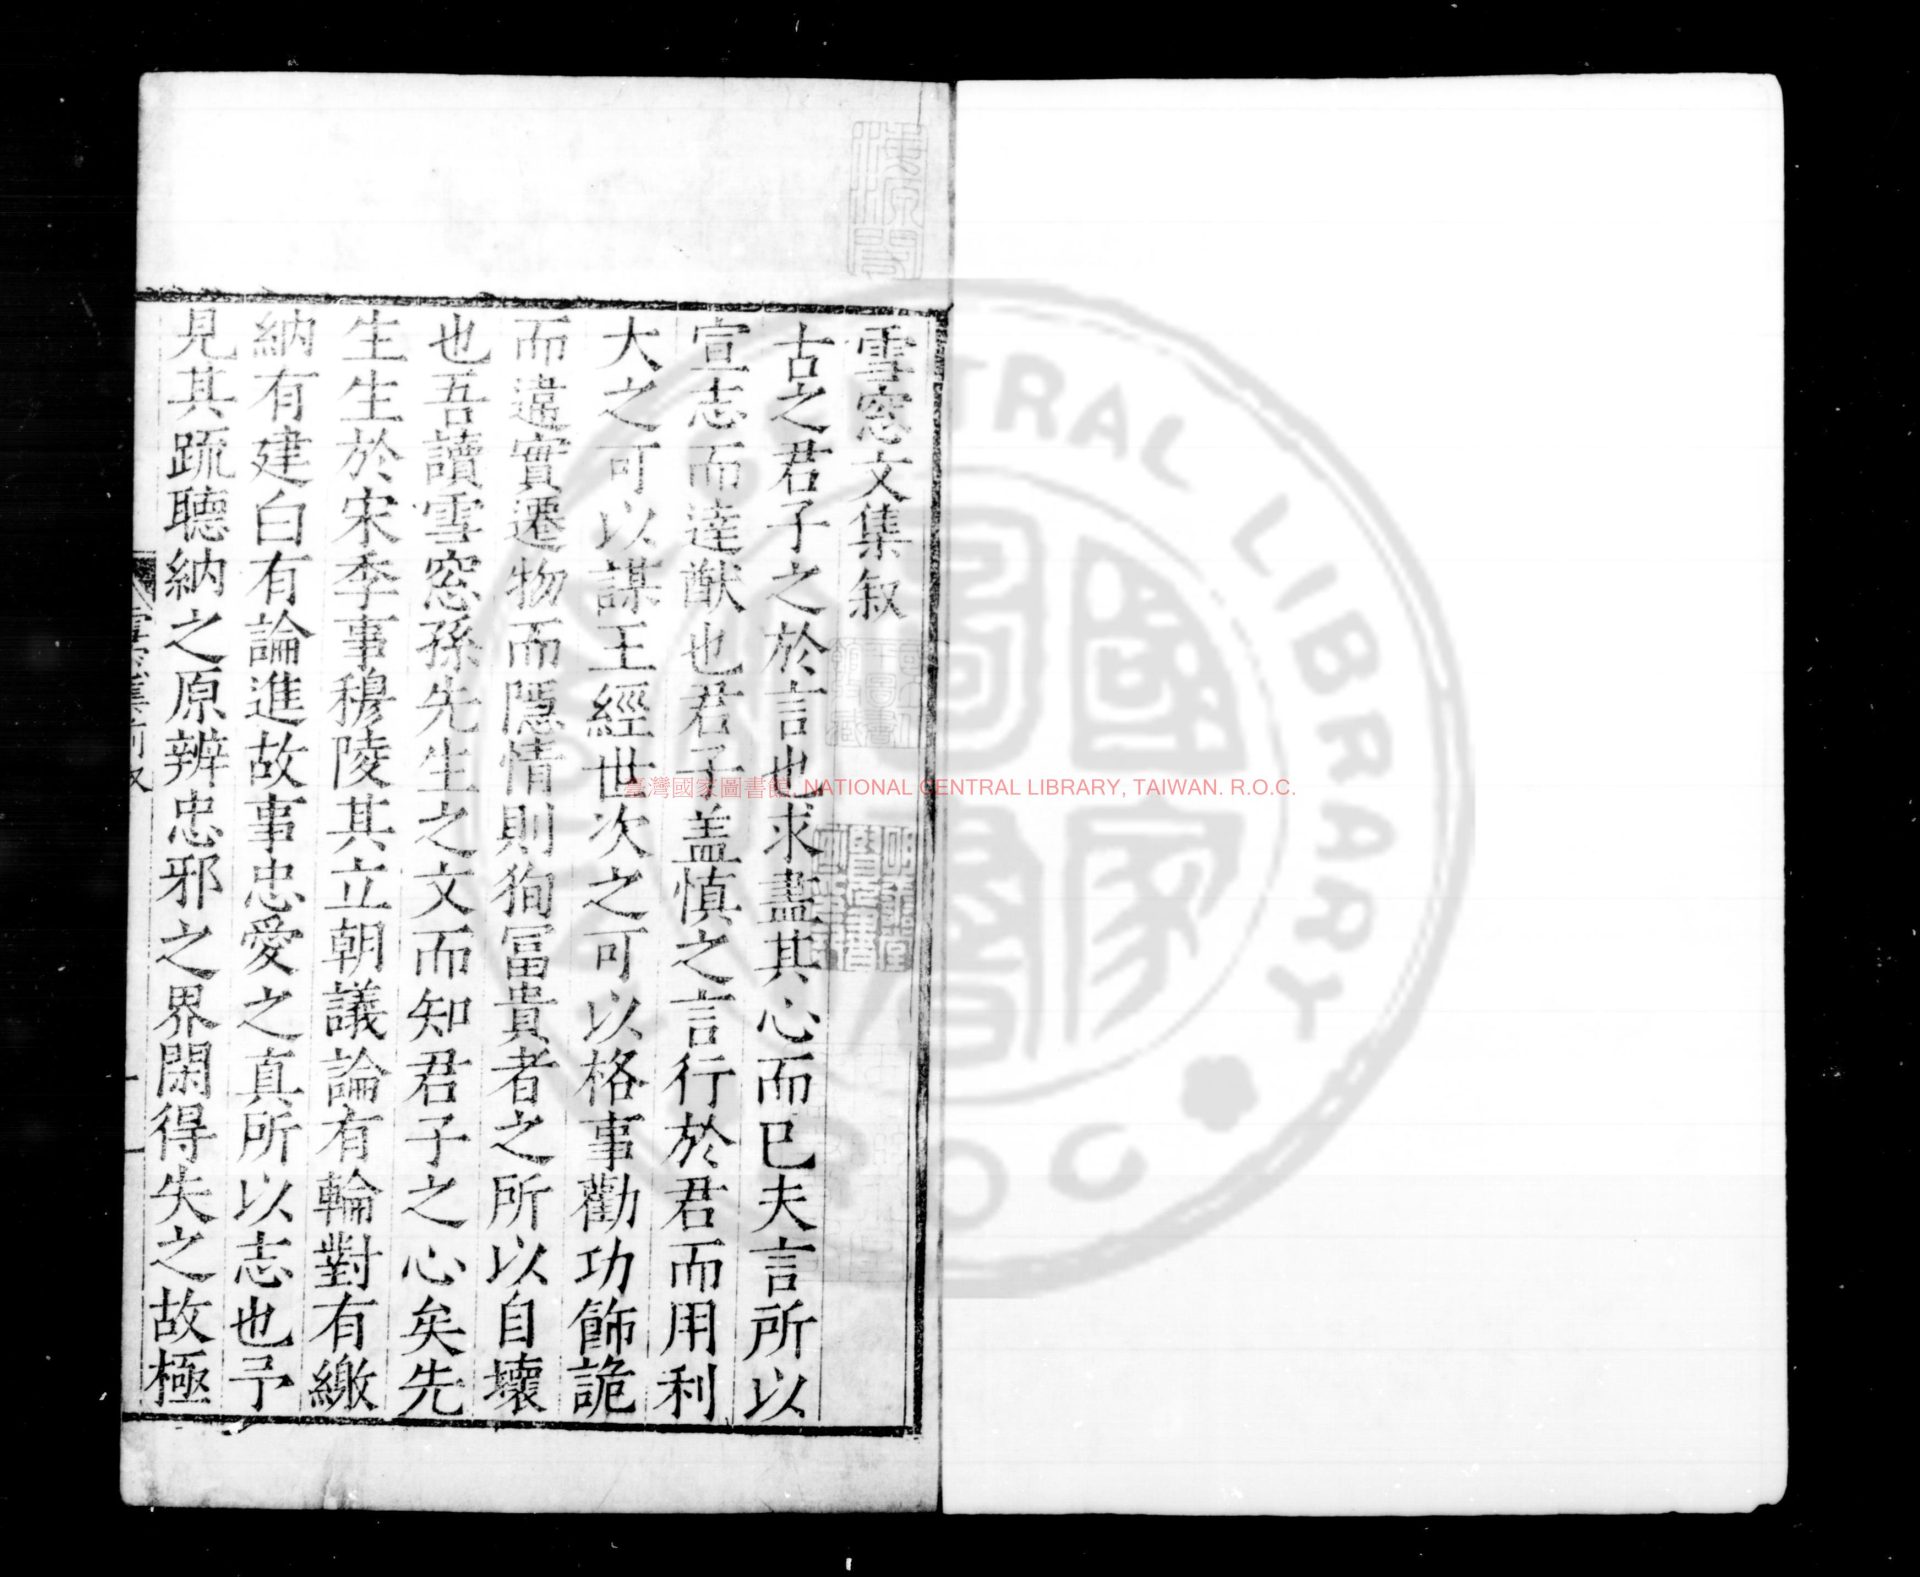 雪窓文集叙
古之君子之於言也求盡其心而已夫言所以
宣志而達猷也君子盖慎之言行於君而用利
大之可以謀王經世次之可以格事勸功飾詭
而違實遷物而隱情則狥冨貴者之所以自壞
也吾讀雪窓孫先生之文而知君子之心矣先
生生於宋季事穆陵其立朝議論有輪對有繳
納有建白有論進故事忠愛之真所以志也予
見其疏聽納之原辨忠邪之界閑得失之故極
雪窓集前叙
一
臺灣國家圖書館, NATIONAL CENTRAL LIBRARY, TAIWAN. R.O.C.
CENTRAL LIBRARY
R.O.C.
國圖家書